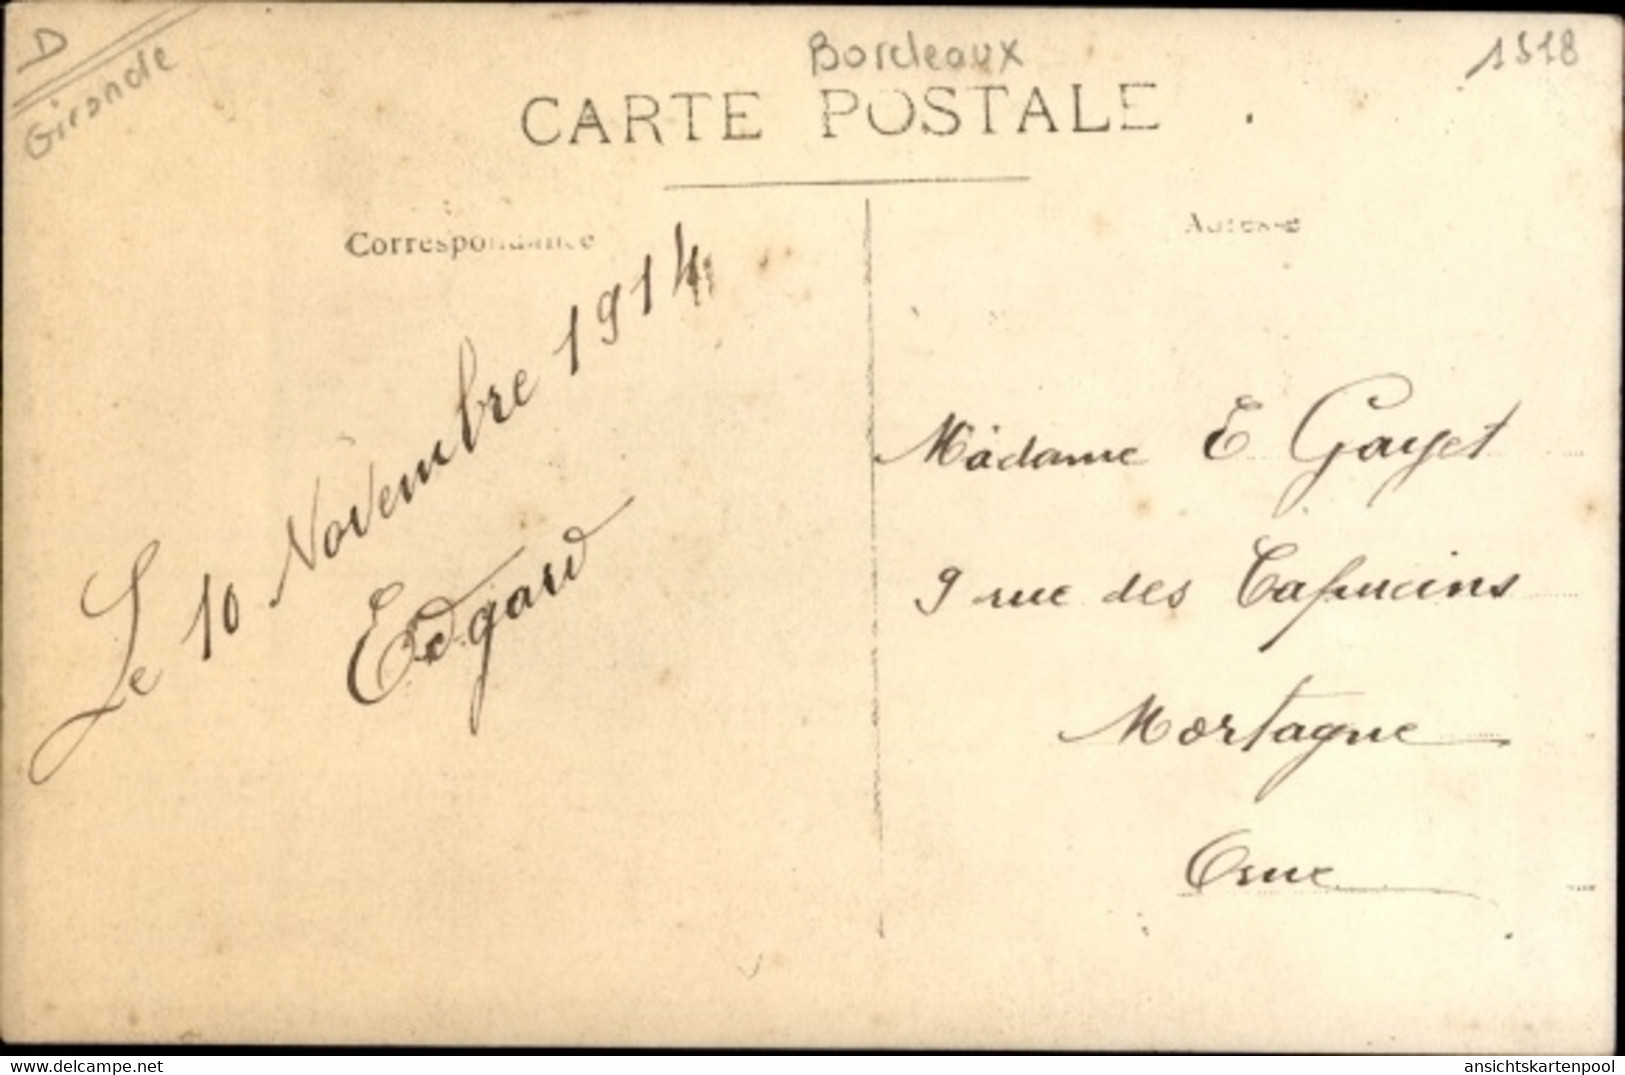 D
Gironde
Bordeaux
1518
CARTE POSTALE
Correspondance
Adresse
Le 10 Novembre 1914
Edgard
Madame E Gayet
9 rue des Capucins
Mortagne
Orne
akpool.de
ansichtskartenpool